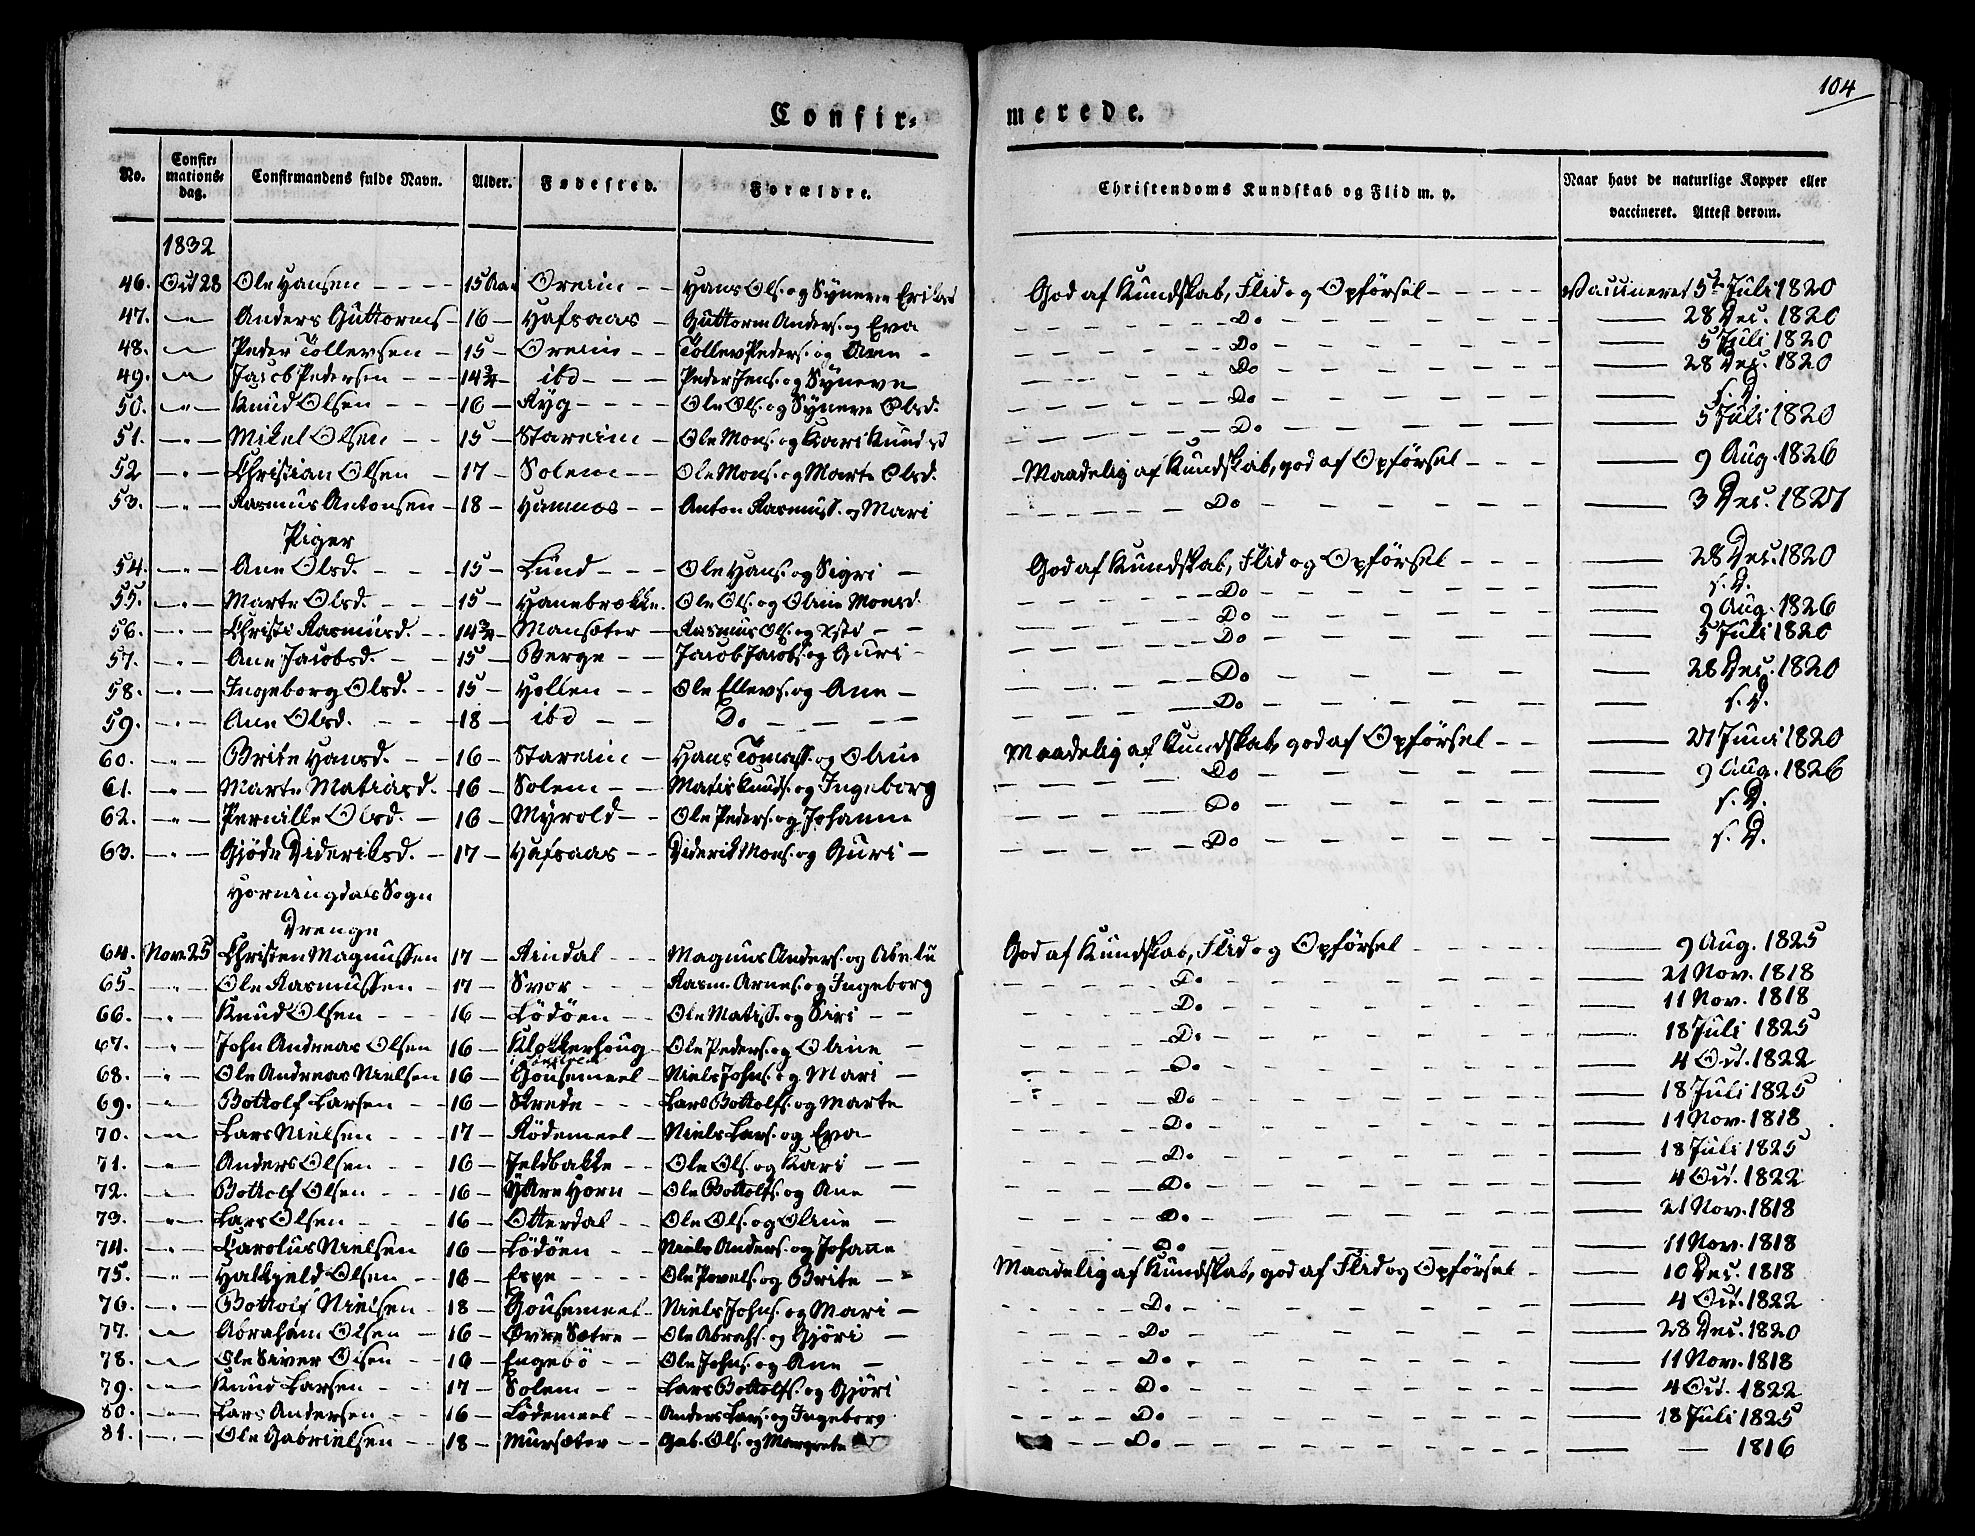 104
Confir= merede.
No. Confir= mations= dag. Confirmandens fulde Navn. Alder. Fødested. Forældre. Christendoms Kundskab og Flid m. v. Naar havt de naturlige Kopper eller vaccineret. Attest derom.
1832
46. Oct 28 Ole Hansen - - - - 15 Aar Oreim - - Hans Ols. og Synneve Eriksd God af Kundskab, Flid og Opførsel - - - - - Vaccineret 5te Juli 1820
47. -"- Anders Guttorms - 16 - Hafsaas - Guttorm Anders. og Eva Do 28 Dec. 1820
48. -"- Peder Tollevsen - 15 - Oreim - - Tollev Peders. og Ane - Do 5 Juli 1820
49. -"- Jacob Pedersen - - - 14 3/4 - ibd - - - Peder Jens. og Synneve Do 28 Dec. 1820
50. -"- Knud Olsen - - - 16 - Ryg - - - - Ole Ols. og Synneve Olsd. Do s. D.
51. -"- Mikel Olsen - - 15 - Stareim - Ole Mons. og Kari Knudsd Do 5 Juli 1820
52 -"- Christian Olsen - 17 - Solem - - Ole Mons. og Marte Olsd. Maadelig af Kundskab, god af Opførsel - - - 9 Aug. 1826
53. -"- Rasmus Antonsen - 18 - Hamnes - - Anton Rasmuss. og Mari Do 3 Dec. 1827
Piger
54. -"- Ane Olsd. - - - 15 - Lund - - - Ole Hans. og Sigri - God af Kundskab, Flid og Opførsel - - - 28 Dec. 1820
55. -"- Marte Olsd. - - - 15 - Hanebrække. Ole Ols. og Oline Monsd. Do s. D.
56. -"- Christi Rasmusd. - - 14 3/4 - Mansæter - Rasmus Ols. og - - Do 9 Aug. 1826
57. -"- Ane Jacobsd. - - 15 - Berge - - Jacob Jacobs. og Guri - Do 5 Juli 1820
58. -"- Ingeborg Olsd. - - 15 - Hollen - - Ole Ellevs. og Ane - Do 28 Dec. 1820
59. -"- Ane Olsd. - - - 18 - ibd - - Do - - - - Do s. D.
60. -"- Brite Hansd. - - 16 - Stareim - Hans Tomass. og Oline Maadelig af Kundskab god af Opførsel - - 27 Juni 1820
61. -"- Marte Matiasd. - 16 - Solem - - Matis Knuds. og Ingeborg Do 9 Aug. 1826
62. -"- Pernille Olsd. - 16 - Myrold - - Ole Peders. og Johanne Do s. D.
63. -"- Gjøde Dideriksd. - 17 - Hafsaas - - Diderik Mons. og Guri - Do s. D.
Horningdals Sogn
Drenge
64. Nov. 25 Christen Magnussen 17 - Rindal - - Magnus Anders. og Abelu God af Kundskab, Flid og Opførsel 9 Aug. 1825
65 -"- Ole Rasmussen - - 17 - Svor - - - Rasm. Arnes. og Ingeborg Do 21 Nov. 1818
66. -"- Knud Olsen - - - 16 - Lödöen - - Ole Matiss. og Siri - - Do 11 Nov. 1818
67. -"- John Andreas Olsen 16 - Klokkerhoug Ole Peders. og Oline - Do 18 Juli 1825
68. -"- Ole Andreas Nielsen 16 - Gousemeel - Niels Johns. og Mari - Do 4 Oct. 1822
69. -"- Bottolf Larsen - - 16 - Skrede - - - Lars Bottolfs. og Marte Do 18 Juli 1825
70. -"- Lars Nielsen - - - 17 - Rödemeel - Niels Lars. og Eva - Do 11 Nov. 1818
71. -"- Anders Olsen - - 16 - Jeldbakke - - Ole Ols. og Kari - - Do 18 Juli 1825
72. -"- Bottolf Olsen - - - 16 - Ytre Horn - Ole Bottolfs. og Ane - Do 4 Oct. 1822
73. -"- Lars Olsen - - - 16 - Otterdal - - Ole Ols. og Oline - Do 21 Nov. 1818
74. -"- Carolus Nielsen 16 - Lödöen - - Niels Anders. og Johane Do 11 Nov. 1818
75. -"- Hallkjeld Olsen - - 16 - Espe - - - - Ole Povels. og Brite - - Maadelig af Kundskab, god af Flid og Opførsel - 10 Dec. 1818
76. -"- Bottolf Nielsen - 18 - Gousemeel - Niels Johns. og Mari - Do 4 Oct. 1822
77. -"- Abraham Olsen - 16 - Øvre Sætre - Ole Abrahs. og Gjöri - Do 28 Dec. 1820
78. -"- Ole Siver Olsen - 16 - Engebö - - Ole Johns. og Ane - Do 11 Nov. 1818
79. -"- Knud Larsen - - 17 - Solem - - Lars Bottolfs. og Gjöri Do 4 Oct. 1822
80. -"- Lars Andersen - - 16 - Lödemeel - - Anders Lars. og Ingeborg Do 18 Juli 1825
81. -"- Ole Gabrielsen - - 18 - Mursæter - - Gab. Ols. og Margrete Do 1816